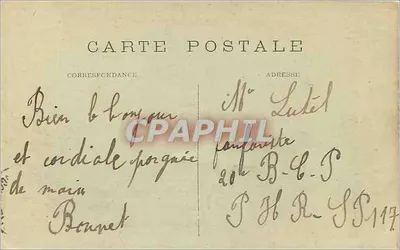 CARTE POSTALE
CORRESPONDANCE
ADRESSE
Bien le bonjour
et cordiale poignée
de main
Bonnet
Mr Lutel
20e B-C-P
P H R- SP 117
CPAPHIL